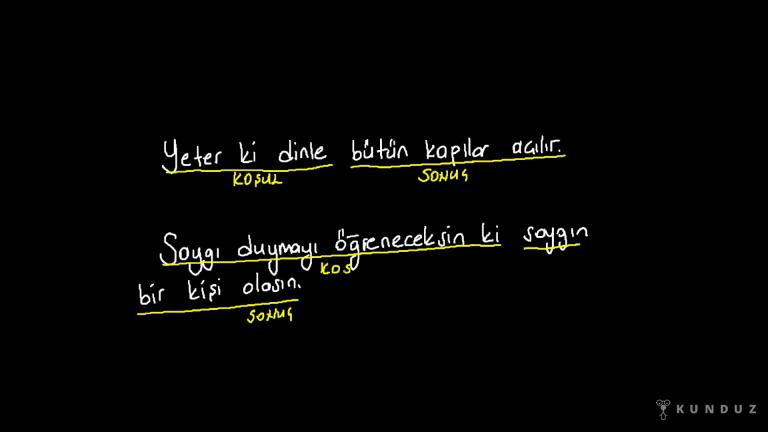 Yeter ki dinle bütün kapılar açılır.
KOŞUL SONUÇ
Saygı duymayı öğreneceksin ki saygın
KOŞ
bir kişi olasın.
SONUÇ
KUNDUZ